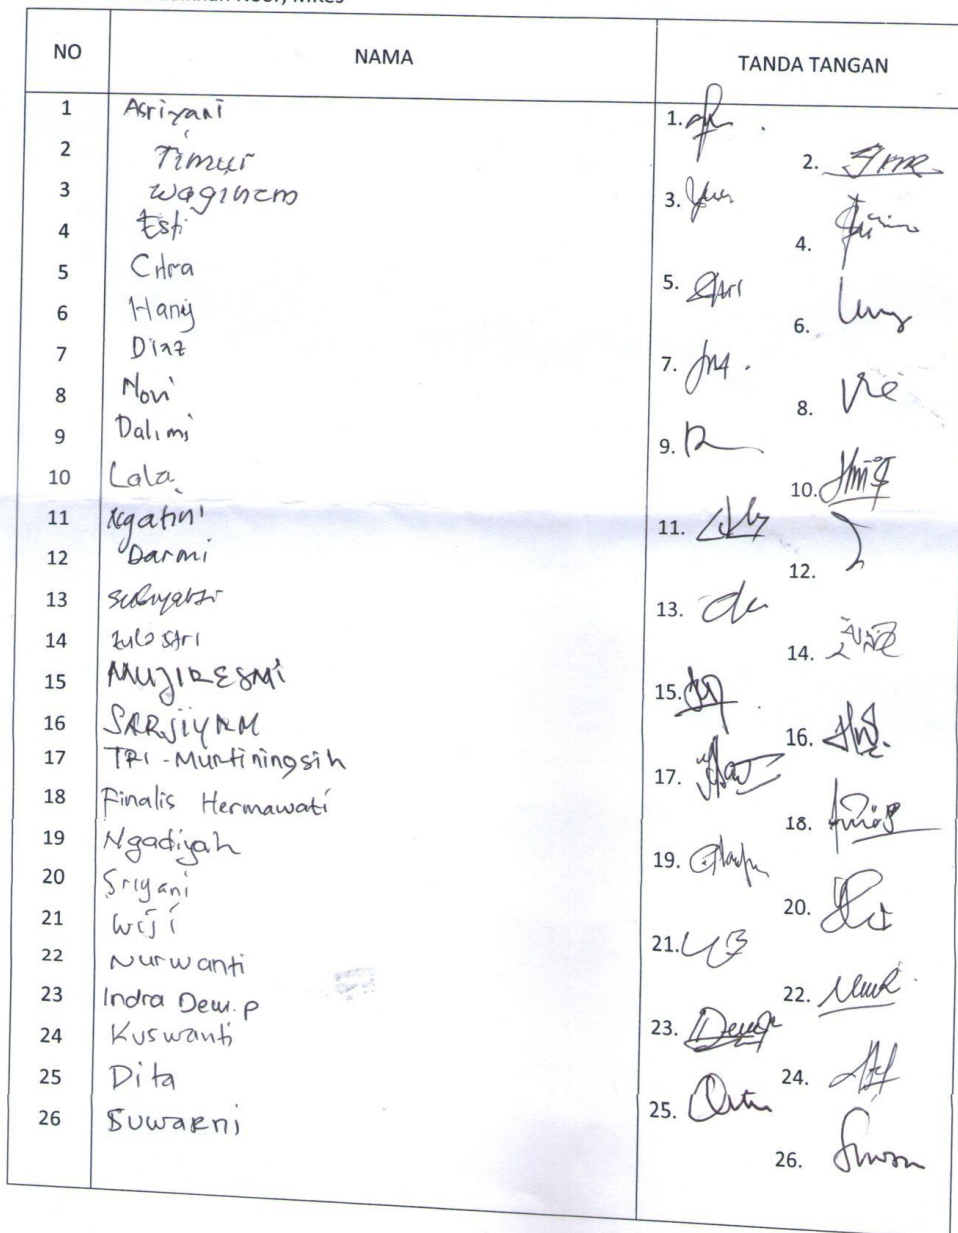 Noor, MKes
NO NAMA TANDA TANGAN
1 Asriyani 1.
2 Timur 2.
3 Waginem 3.
4 Esti 4.
5 Citra 5.
6 Hany 6.
7 Diaz 7.
8 Novi 8.
9 Dalimi 9.
10 Lala 10.
11 Ngatini 11.
12 Darmi 12.
13 13.
14 14.
15 MUJIRESMI 15.
16 SARJIYEM 16.
17 TRI - Murtiningsih 17.
18 Finalis Hermawati 18.
19 Ngadiyah 19.
20 Sriyani 20.
21 Wiji 21.
22 Nurwanti 22.
23 Indra Dewi.p 23.
24 Kuswanti 24.
25 Dita 25.
26 Suwarni 26.